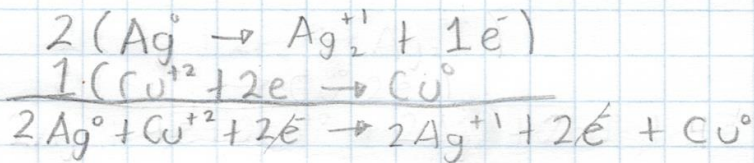 2 (Ag⁰ → Ag₂⁺¹ + 1e⁻)
1·(Cu⁺² + 2e → Cu⁰
2Ag⁰ + Cu⁺² + 2e⁻ → 2Ag⁺¹ + 2e⁻ + Cu⁰